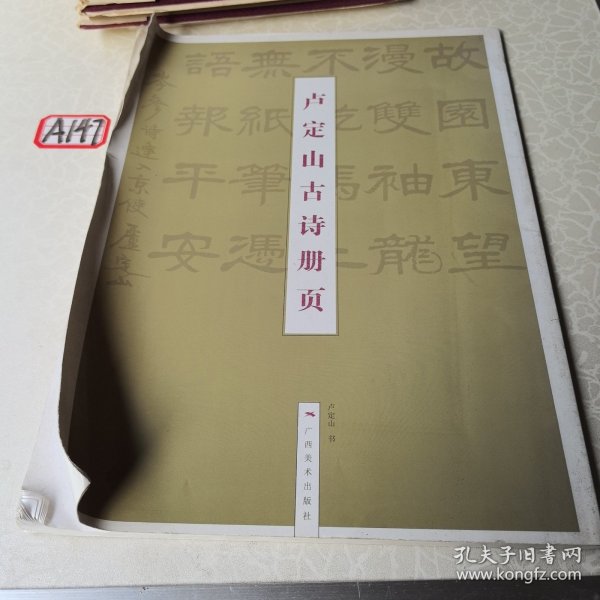 故園東望
漫雙袖龍
不乾馬上
無紙筆憑
語報平安
岑參詩逢入京使
盧定山
卢定山古诗册页
卢定山 书
广西美术出版社
A147
孔夫子旧书网
www.kongfz.com